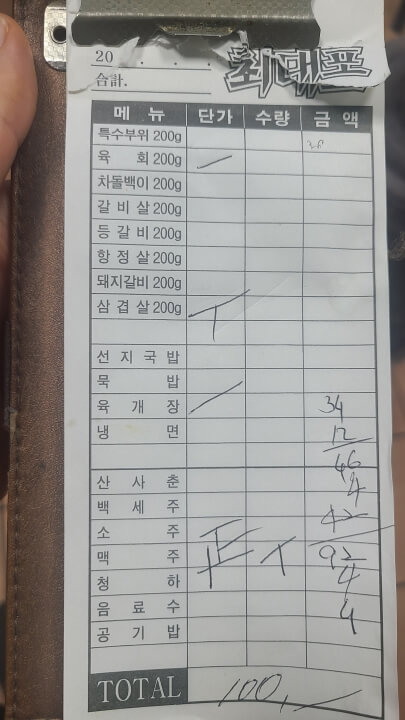 최대포
20 . . .
合計.
메뉴 단가 수량 금액
특수부위 200g
육 회 200g
차돌백이 200g
갈비살 200g
등갈비 200g
항정살 200g
돼지갈비 200g
삼겹살 200g
선지국밥
묵 밥
육 개 장 34
냉 면 12
46
산 사 춘 4
백 세 주 42
소 주 正 丅
맥 주 92
청 하 4
음 료 수 4
공 기 밥
TOTAL 100,-